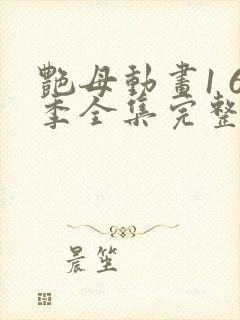 艷母動畫1 6
季全集完整
晨笙